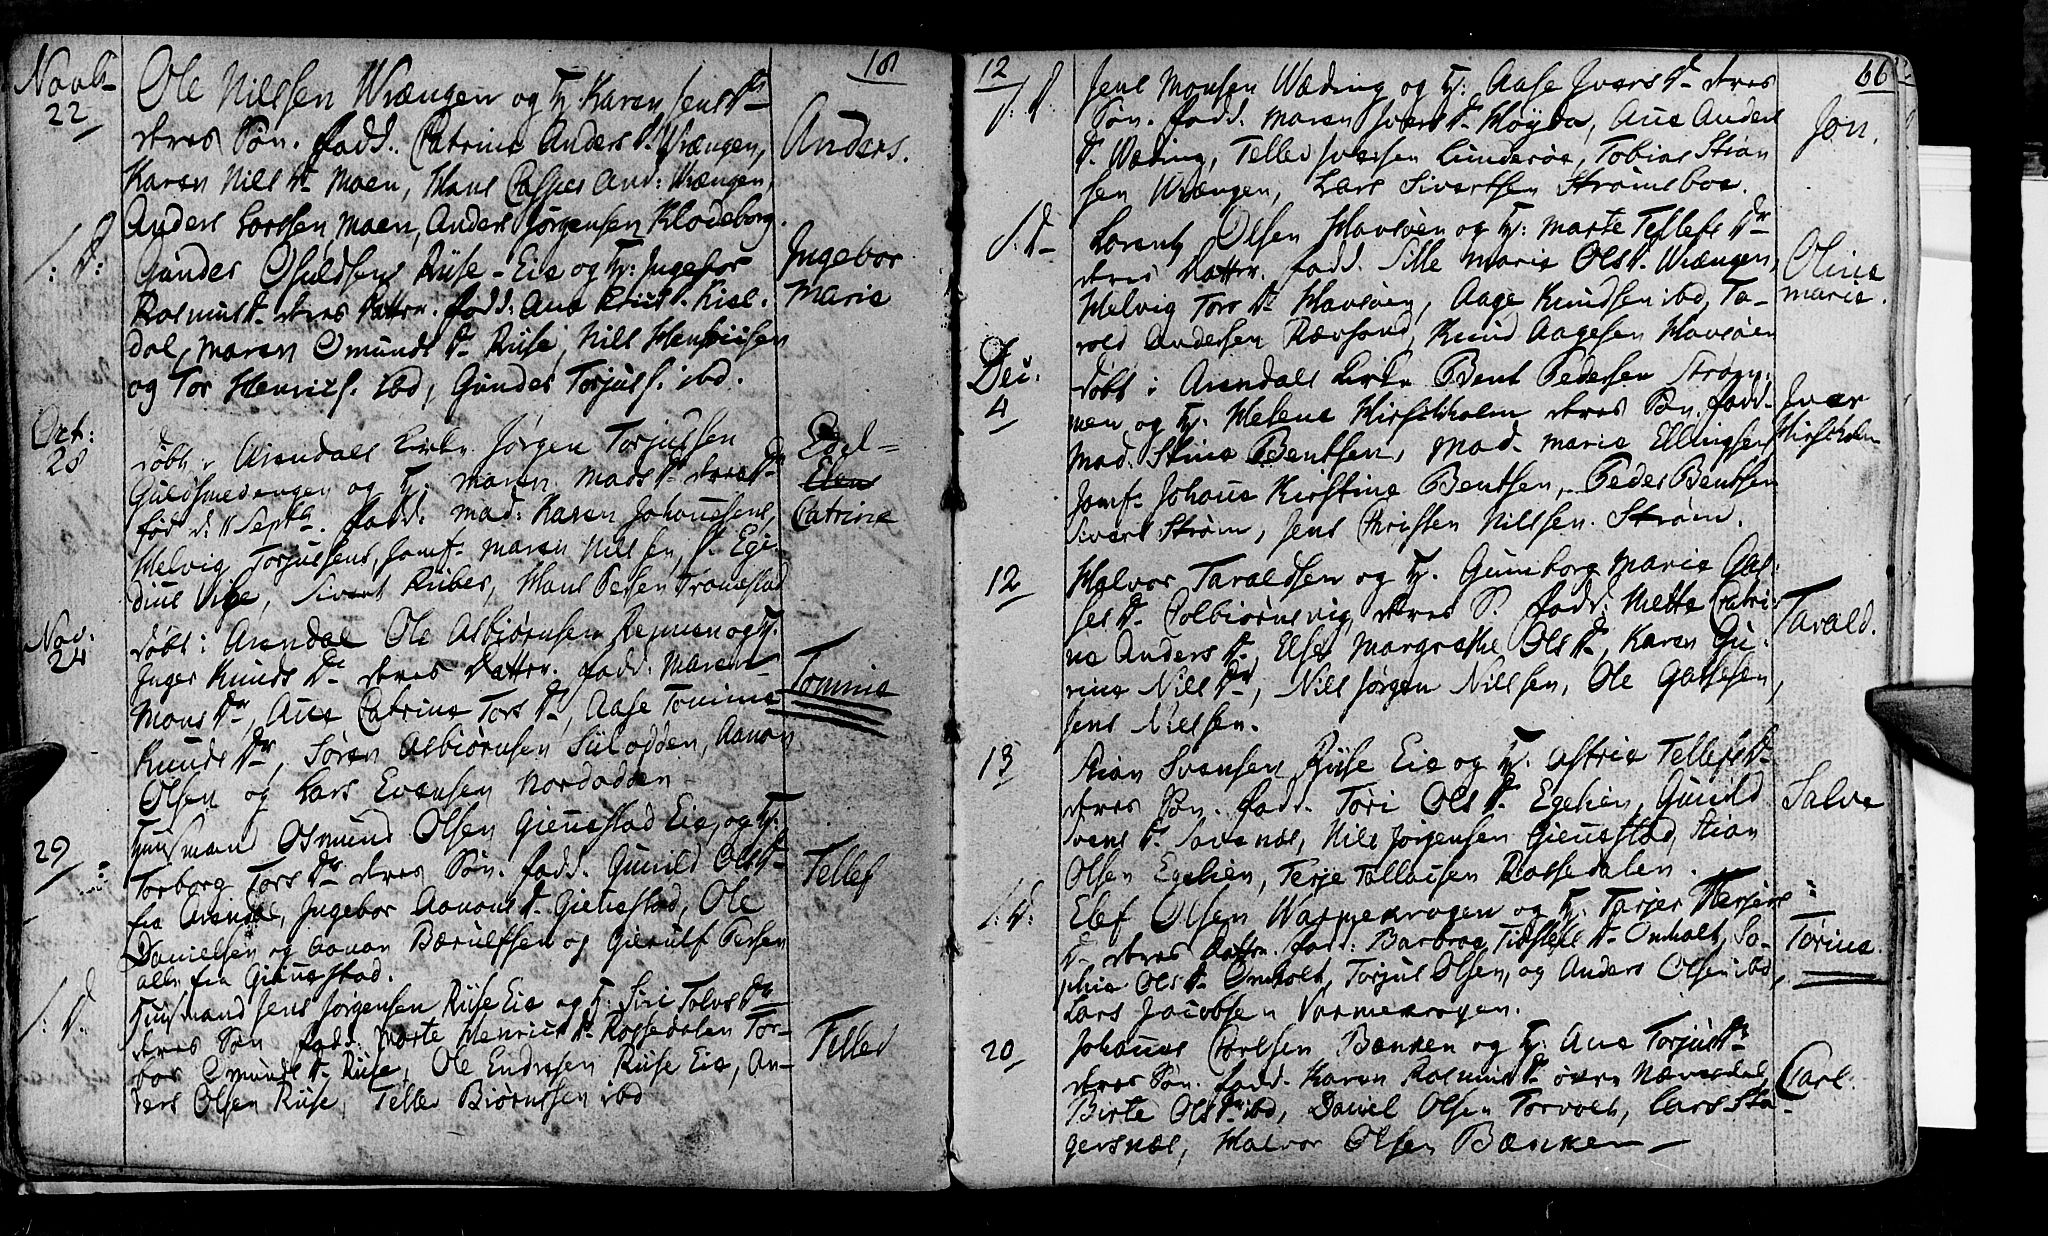 Novb. 22
18
Ole Nilssen Wrængen og H. Karen Jens D.
deres Søn. fadd. Catrine Anders D. Wrængen,
Karen Nils D. Moen, Hans Casper And: Wrængen,
Anders Larssen Moen, Anders Jørgensen Klodeborg.
Anders.
s: D:
Gunder Osuldsens Riise-Eie og H: Ingebor
Rasmus D. deres Datter. fadd: Ane Knud D. Kisl-
dal, Maren Omunds D. Riise, Nils Henrichsen
og Tor Henrichs. ibd, Gunder Torjuss. ibd.
Ingebor
Marie
Oct: 28
døbt i Arendals Kirke Jørgen Torjussen
Guldsmedengen og H. Maren Mads D. deres D.
fød d. 11 Septb. fadd. Mad: Karen Johannesens,
Helvig Torjussens, Jomf. Maren Nilsen, S. Egi-
dius Vibe, Sivert Ruber, Hans Persen Tronestad
Edel=
Elen
Catrine
Nov. 24
døbt i Arendal Ole Asbiørnsen og H.
Inger Knuds D. deres Datter. fadd: Maren
Mons D., Ane Catrine Tors D., Aase Tomine
Knuds D., Søren Asbiørnsen Siilodden, Aanon
Olsen og Lars Evensen Nordodden
Tomine
29
Huusmand Osmund Olsen Gienestad Eie, og H.
Torborg Tors D. deres Søn. fadd. Gunild Ols D.
fra Arendal, Ingebor Aanons D. Gienestad, Ole
Danielsen og Aanon Bærulfsen og Gierulf Persen
alle fra Gienestad.
Tellef
s. D.
Huusmand Jens Jørgensen Riise Eie og H. Siri Tolvs D.
deres Søn fadd: Marte Henrichs D. Rossedalen Tor-
bor Omunds D. Riise, Ole Endresen Riise Eie, An-
ders Olsen Riise, Tellev Biørnssen ibd
Tellev
66
12
s. D
Jens Monsen Wæding og H: Aase Ivers D. deres
Søn. fadd. Maren Ivers D. Høyda, Ane Anders
D. Wæding, Tellev Iversen Lunderøe, Tobias Stian
sen Wrængen, Lars Sivertsen Strømsboe.
Jon.
s: D
Lorentz Olsen Havsøen og H: Marte Tellefs D.
deres Datter. fadd. Sille Marie Ols D. Wrængen,
Helvig Tors D. Havsøen, Aage Knudsen ibd, Ta-
rold Andersen Rævsand, Knud Aagesen Havsøen
Oline
Marie.
Dec. 4
døbt i Arendals Kirke Bent Pedersen Strøm-
men og H: Helene Hirschholm deres Søn. fadd.
Mad. Stine Bentsen, Mad. Marie Ellingsen,
Jomf. Johanne Kirstine Bentsen, Peder Bentsen
Sivert Strøm, Jens Christen Nilssen. Strøm.
Iver
Hirscholm
12
Halvor Taraldsen og H. Gunborg Marie Gas-
ses D. Colbiørnsvig, deres S. fadd: Mette Catri-
ne Anders D., Else Margrethe Ols D., Karen Gu-
rine Nils D., Nils Jørgen Nilssen, Ole Gassesen,
Jens Nielsen.
Tarald.
13
Stian Svensen Riise Eie og H. Astrie Tellefs D.
deres Søn. fadd. Tori Ols D. Egehien, Gunild
Svens D. Savenæs, Nils Jørgensen Gienestad, Stian
Olsen Egehien, Terje Tallaksen Rossedalen.
Salve
s: D:
Elef Olsen Warmekrogen og H. Tarjer Terjers
D. deres Datter. fadd: Barbroe Tidslefs D. Omholt, So-
phie Ols D. Omholt, Torjus Olsen, og Anders Olsen ibd,
Lars Jacobsen Varmekrogen.
Torine.
20
Johannes Carlsen Bænken og H. Ane Torjus D.
deres Søn. fadd. Karen Rasmus D. øvre Næversdal,
Birte Ols D. ibd, Daniel Olsen Torvolt, Lars Sta-
gersnæs, Halvor Olsen Bænken
Carl.